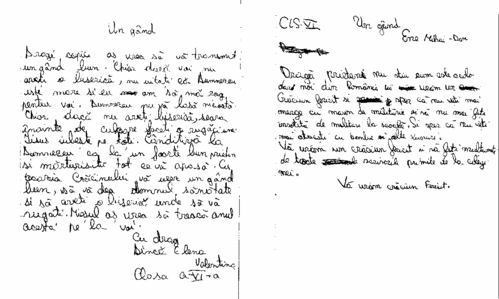 Un gând
Dragi copii aș vrea să vă transmit
un gând bun. Chiar dacă voi nu
aveți o biserică, nu uitați că Dumnezeu
este mare și eu am să mă rog
pentru voi. Dumnezeu nu vă lasă niciodată
Chiar dacă nu aveți biserică, seara
înainte de culcare faceți o rugăciune
Iisus iubește pe toți. Gândiți-vă la
Dumnezeu ca la un foarte bun prieten
și mărturisiți tot ce vă apasă. Cu
ocazia Crăciunului vă urez un gând
bun, să vă dea domnul sănătate
și să aveți o biserică unde să vă
rugați. Moșul aș vrea să treacă anul
acesta pe la voi.
Cu drag
Dincă Elena
Valentina
Clasa a-VI-a
CLS-VI
Un gând
Ene Mihai-Dan
Dragă prieten nu știu cum este acolo
dar noi din România vă urăm un
Crăciun fericit și sper că nu veți mai
merge cu mașini de militărie și nu mai fiți
însoțiți de militari la școală. Și sper ca nu veți
mai atacați cu bombe și alte lucruri.
Vă urăm un crăciun fericit și să fiți mulțumiți
de toate primite de la colegii
mei.
Vă urăm crăciun fericit.